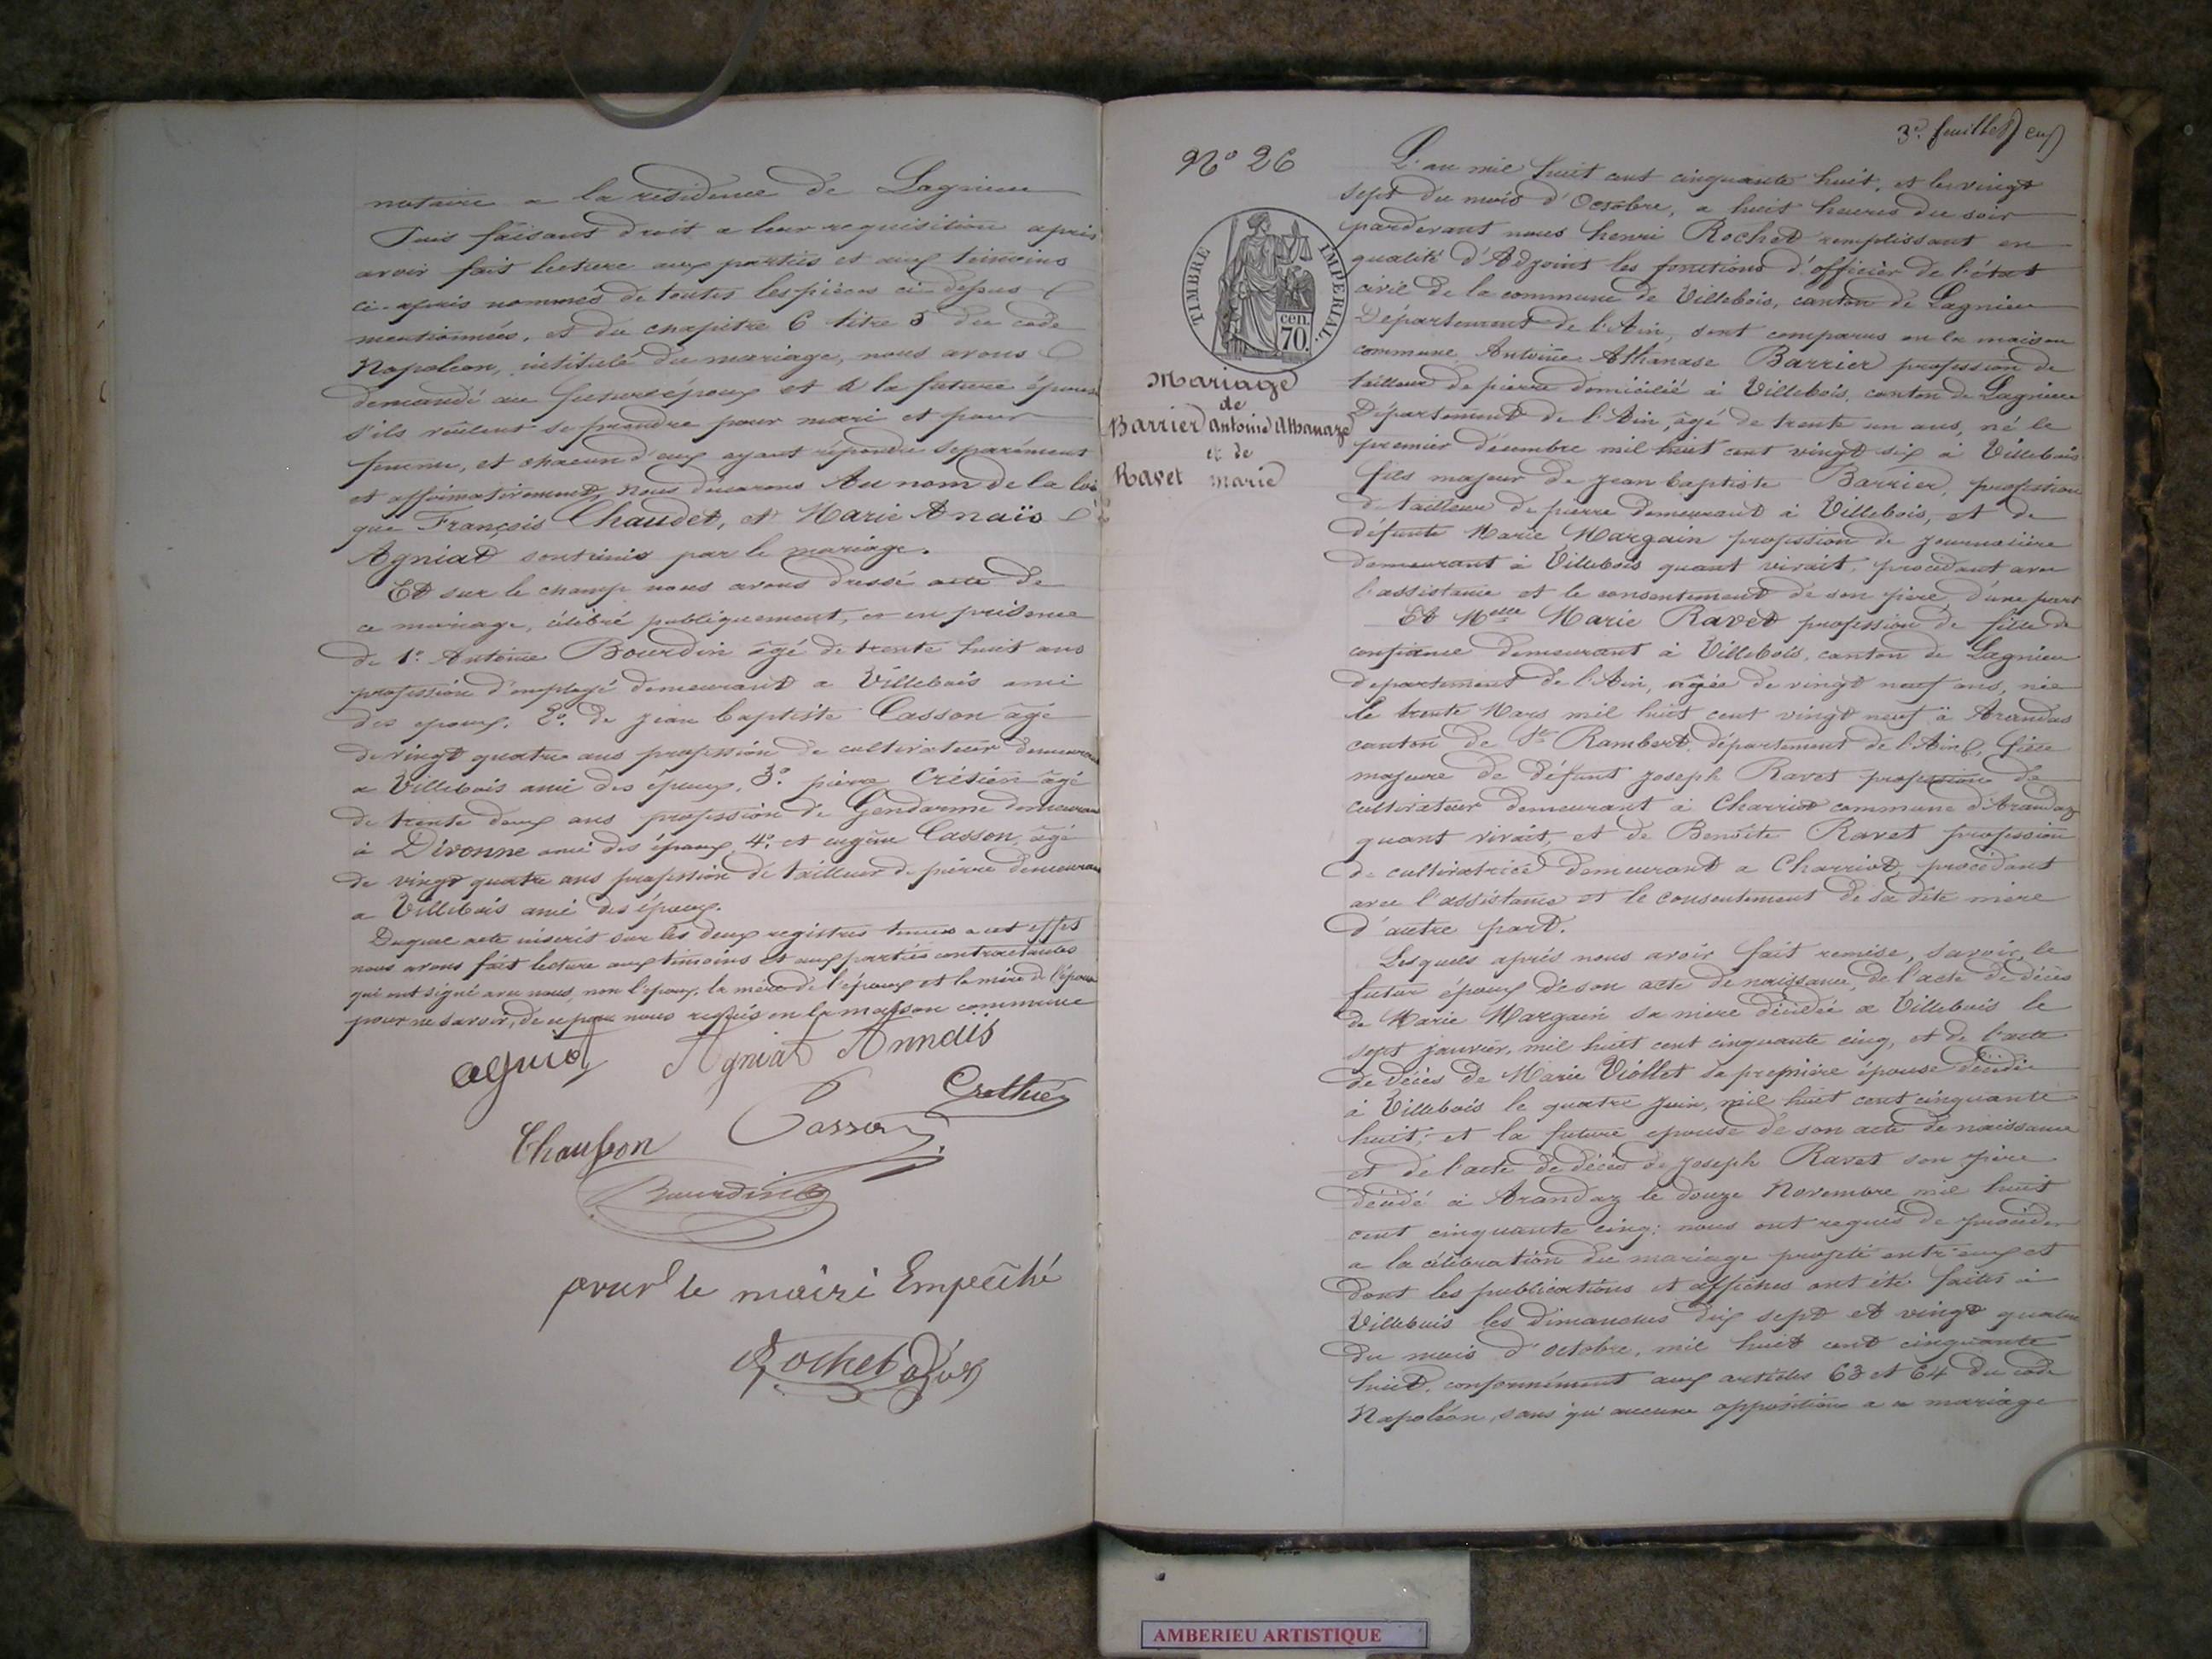 notaire a la résidence de Lagnieu
Puis faisant droit a leur requisition apris
avoir fait lecture aux parties et aux témoins
ci-après nommés de toutes les pièces ci-dessus
mentionnées, et du chapitre 6 titre 5 du code
Napoléon, intitulé du mariage, nous avons
demandé au futur époux et à la future épouse
s'ils veulent se prendre pour mari et pour
femme, et chacun d'eux ayant répondu séparément
et affirmativement, nous déclarons Au nom de la loi
que François Chaudet, et Marie Anaïs
Agniat sont unis par le mariage.
Et sur le champ nous avons dressé acte de
ce mariage, célébré publiquement, et en présence
de 1° Antoine Bourdin âgé de trente huit ans
profession d'employé demeurant a Villebois ami
des epoux. 2° de jean baptiste Casson âgé
de vingt quatre ans profession de cultivateur demeurant
a Villebois ami des époux, 3° pierre Crétien âgé
de trente deux ans profession de Gendarme demeurant
à Divonne ami des époux, 4° et eugène Casson, âgé
de vingt quatre ans profession de tailleur de pierre demeurant
a Villebois ami des époux.
Duquel acte inscrit sur les deux registres tenus a cet effet
nous avons fait lecture aux témoins et aux parties contractantes
qui ont signé avec nous, non l'epoux, la mère de l'époux et la mère de l'épouse
pour ne savoir, de ce par nous requis en la maison commune
agniat Agniat Annaïs
Casson
Bourdin
pour le maire Empeché
Rochet adjoint
3e feuillet
N° 26
TIMBRE IMPERIAL
cen.
70.
Mariage
de
Barrier Antoine Athanaze
et de
Ravet Marie
L'an mil huit cent cinquante huit, et le vingt
sept du mois d'Octobre, a huit heures du soir
pardevant nous henri Rochet remplissant en
qualité d'Adjoint les fonctions d'officier de l'état
civil de la commune de Villebois, canton de Lagnieu
Departement de l'Ain, sont comparus en la maison
commune Antoine Athanase Barrier profession de
tailleur de pierre domicilié à Villebois, canton de Lagnieu
Département de l'Ain, âgé de trente un ans, né le
premier décembre mil huit cent vingt six à Villebois
fils majeur de jean baptiste Barrier, profession
de tailleur de pierre demeurant à Villebois, et de
défunte Marie Margain profession de journalière
demeurant à Villebois quant vivait, procédant avec
l'assistance et le consentement de son père, d'une part
Et Melle Marie Ravet profession de fille de
confiance demeurant à Villebois, canton de Lagnieu
departement de l'Ain, agée de vingt neuf ans, née
le trente Mars mil huit cent vingt neuf à Arandas
canton de St Rambert, département de l'Ain, fille
majeure de défunt joseph Ravet profession de
cultivateur demeurant à Charriot commune d'Arandaz
quant vivait, et de Benoîte Ravet profession
de cultivatrice demeurant a Charriot, procédant
avec l'assistance et le consentement de sa dite mère
d'autre part.
Lesquels après nous avoir fait remise, savoir, le
futur époux de son acte de naissance, de l'acte de décès
de Marie Margain sa mère décédée a Villebois le
sept janvier, mil huit cent cinquante cinq, et de l'acte
de décès de Marie Viollet sa première épouse décédée
à Villebois le quatre juin, mil huit cent cinquante
huit, et la future epouse de son acte de naissance
et de l'acte de décès de joseph Ravet son père
décédé à Arandaz le douze Novembre mil huit
cent cinquante cinq; nous ont requis de procéder
a la célébration du mariage projeté entr'eux et
dont les publications et affiches ont été faites à
Villebois les dimanches dix sept et vingt quatre
du mois d'octobre, mil huit cent cinquante
huit, conformément aux articles 63 et 64 du code
Napoléon, sans qu'aucune opposition a ce mariage
AMBERIEU ARTISTIQUE